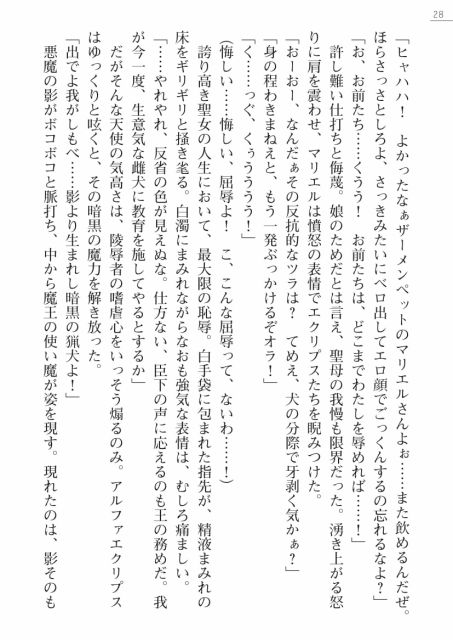 28
「ヒャハハ!　よかったなぁザーメンペットのマリエルさんよぉ……また飲めるんだぜ。
ほらさっさとしろよ、さっきみたいにベロ出してエロ顔でごっくんするの忘れるなよ?」
「お、お前たち……くうう!　お前たちは、どこまでわたしを辱めれば……!」
　許し難い仕打ちと侮蔑。娘のためだとは言え、聖母の我慢も限界だった。湧き上がる怒
りに肩を震わせ、マリエルは憤怒の表情でエクリプスたちを睨みつけた。
「おーおー、なんだぁその反抗的なツラは?　てめえ、犬の分際で牙剥く気かぁ?」
「身の程わきまねえと、もう一発ぶっかけるぞオラ!」
「く……っぐ、くぅううう!」
(悔しい……悔しい、屈辱よ!　こ、こんな屈辱って、ないわ……!)
　誇り高き聖女の人生において、最大限の恥辱。白手袋に包まれた指先が、精液まみれの
床をギリギリと掻き毟る。白濁にまみれながらなおも強気な表情は、むしろ痛ましい。
「……やれやれ、反省の色が見えぬな。仕方ない、臣下の声に応えるのも王の務めだ。我
が今一度、生意気な雌犬に教育を施してやるとするか」
　だがそんな天使の気高さは、陵辱者の嗜虐心をいっそう煽るのみ。アルファエクリプス
はゆっくりと呟くと、その暗黒の魔力を解き放った。
「出でよ我がしもべ……影より生まれし暗黒の猟犬よ!」
　悪魔の影がボコボコと脈打ち、中から魔王の使い魔が姿を現す。現れたのは、影そのも